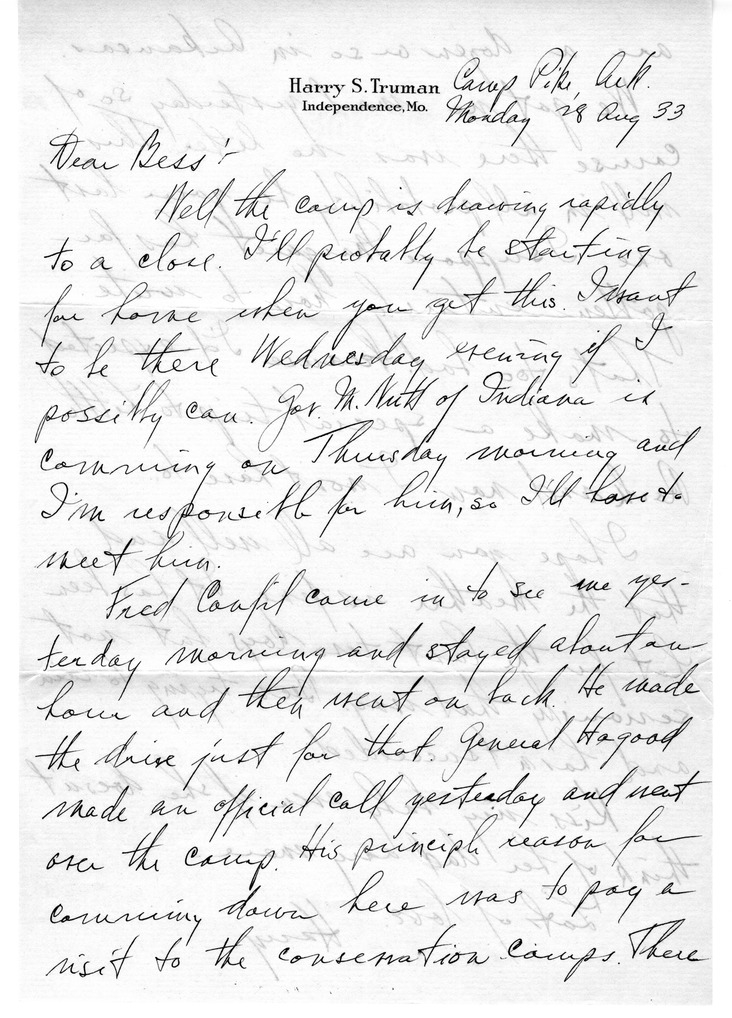 Harry S. Truman
Independence, Mo.
Camp Pike, Ark.
Monday 28 Aug 33
Dear Bess:-
Well the camp is drawing rapidly
to a close. I'll probably be starting
for home when you get this. I want
to be there Wednesday evening if I
possibly can. Gov. M.Nutt of Indiana is
comming on Thursday morning and
I'm responsible for him, so I'll have to
meet him.
Fred Canfil came in to see me yes-
terday morning and stayed about an
hour and then went on back. He made
the drive just for that. General Hagood
made an official call yesterday and went
over the camp. His principle reason for
comming down here was to pay a
visit to the conservation camps. There